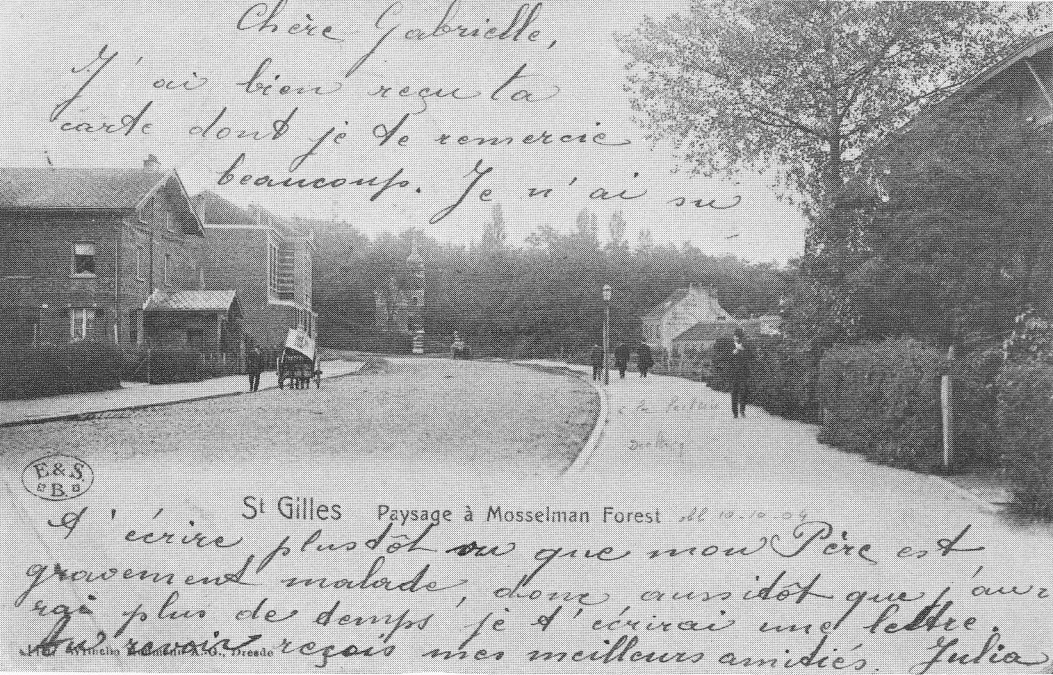 Chère Gabrielle,
J'ai bien reçu ta
carte dont je te remercie
beaucoup. Je n'ai su
E&S.
B.
St Gilles Paysage à Mosselman Forest 10-10-04
t'écrire plustôt vu que mon Père est
gravement malade, donc aussitôt que j'au-
rai plus de temps je t'écrirai une lettre.
Au revoir reçois mes meilleurs amitiés. Julia
Wilhelm A.-G., Dresde